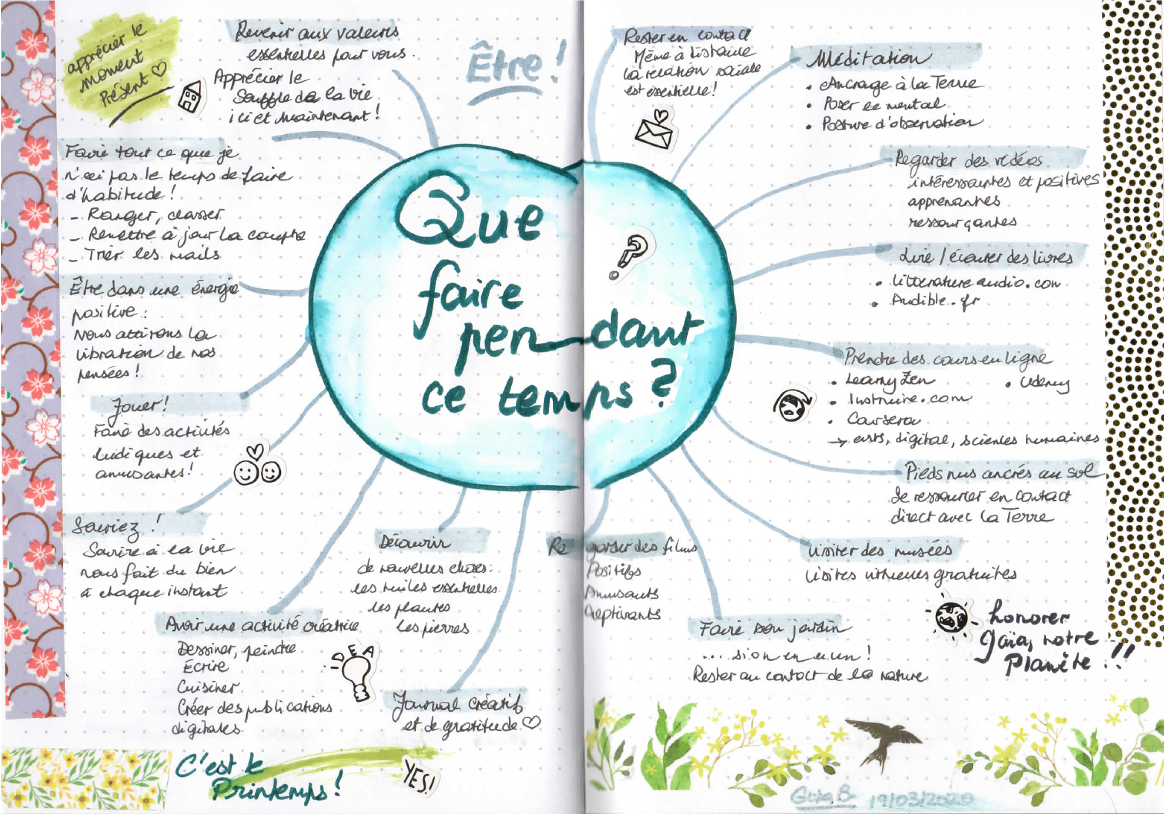 apprécier le
moment
Présent ♡
Revenir aux valeurs
essentielles pour vous.
Apprécier le
Souffle de la vie
ici et maintenant !
Être !
Faire tout ce que je
n'ai pas le temps de faire
d'habitude !
- Ranger, classer
- Remettre à jour la compta
- Trier les mails
Être dans une énergie
positive :
Nous attirons la
vibration de nos
pensées !
Jouer !
Faire des activités
ludiques et
amusantes !
Souriez !
Sourire à la vie
nous fait du bien
à chaque instant
Avoir une activité créative
Dessiner, peindre
Écrire
Cuisiner
Créer des publications
digitales
IDEA
Découvrir
de nouvelles choses :
les huiles essentielles
les plantes
les pierres
Journal créatif
et de gratitude ♡
C'est le
Printemps !
YES!
Que
faire
pendant
ce temps ?
?
Rester en contact
Même à distance
la relation sociale
est essentielle !
Méditation
• Ancrage à la Terre
• Poser le mental
• Posture d'observation
Regarder des vidéos
intéressantes et positives
apprenantes
ressourçantes
Lire / écouter des livres
• Litterature audio.com
• Audible.fr
Prendre des cours en ligne
• LearnyZen • Udemy
• Instruire.com
• Coursera
→ arts, digital, sciences humaines
Pieds nus ancrés au sol
Se ressourcer en contact
direct avec la Terre
Visiter des musées
Visites virtuelles gratuites
Regarder des films
Positifs
Amusants
Captivants
Faire son jardin
... si on en a un !
Rester au contact de la nature
honorer
Gaïa, notre
Planète !!
19/03/2020